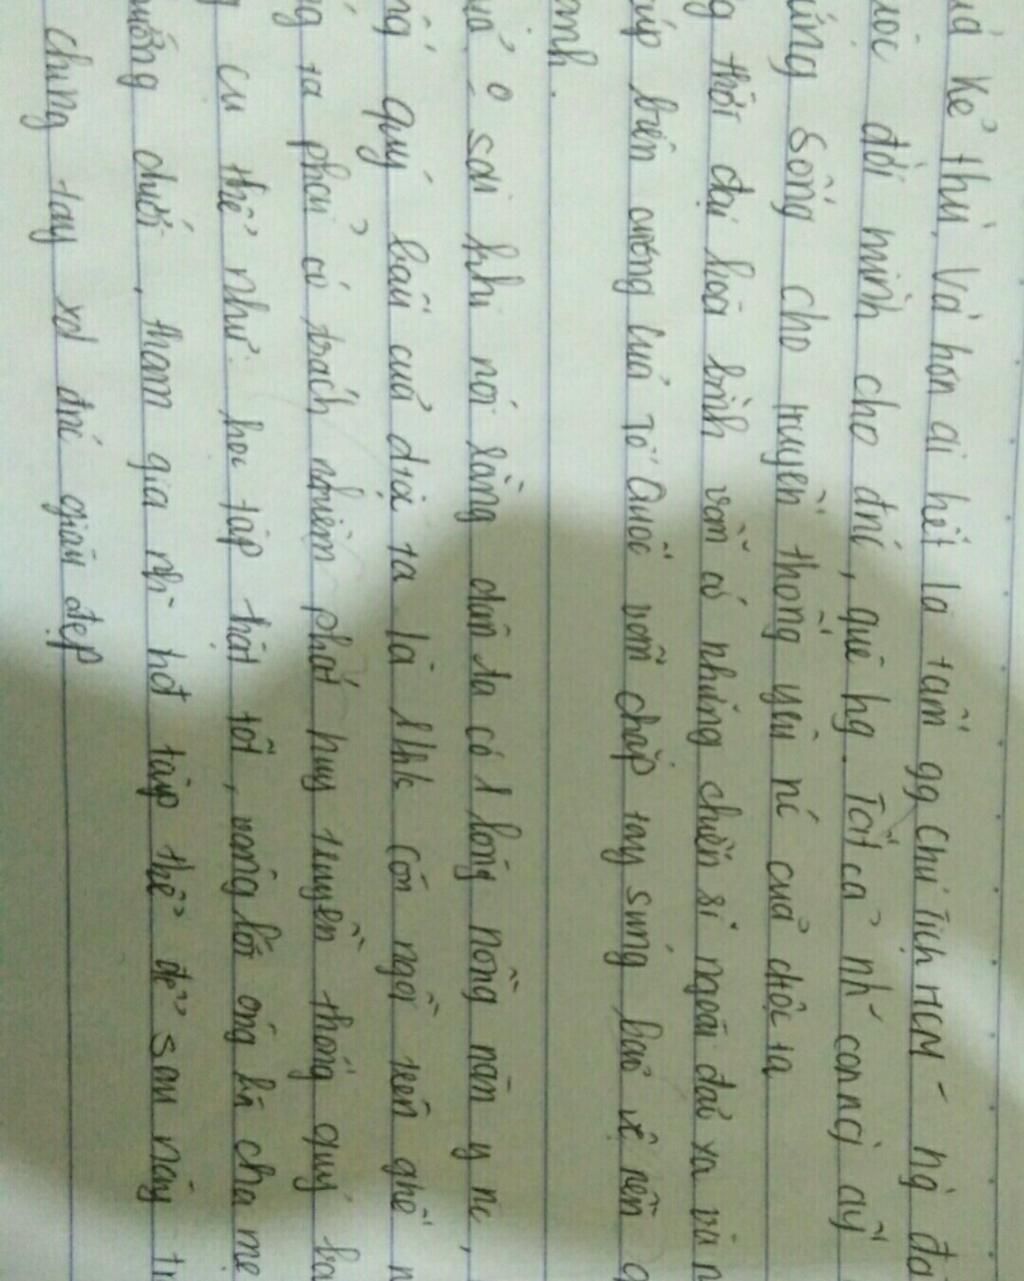 kẻ thù. Và hơn ai hết là tấm gg chủ Tịch HCM - ng đã
đời mình cho đnc, quê hg. Tất cả nh~ con ng` ấy
sống cho truyền thống yêu nc của dtộc ta
thời đại hoà bình vẫn có những chiến sĩ ngoài đảo xa và n
biên cương của Tổ Quốc vẫn chắp tay súng bảo vệ nền
sai khi nói rằng dân ta có 1 lòng nồng nàn y nc,
quý báu của dtộc ta là con ngời trên ghế n
ta phải có trách nhiệm phát huy truyền thống quý bá
cụ thể như: học tập thật tốt, vâng lời ông bà cha mẹ
dưới, tham gia nh~ hđ tập thể để sau này tr
chung tay xd đnc giàu đẹp